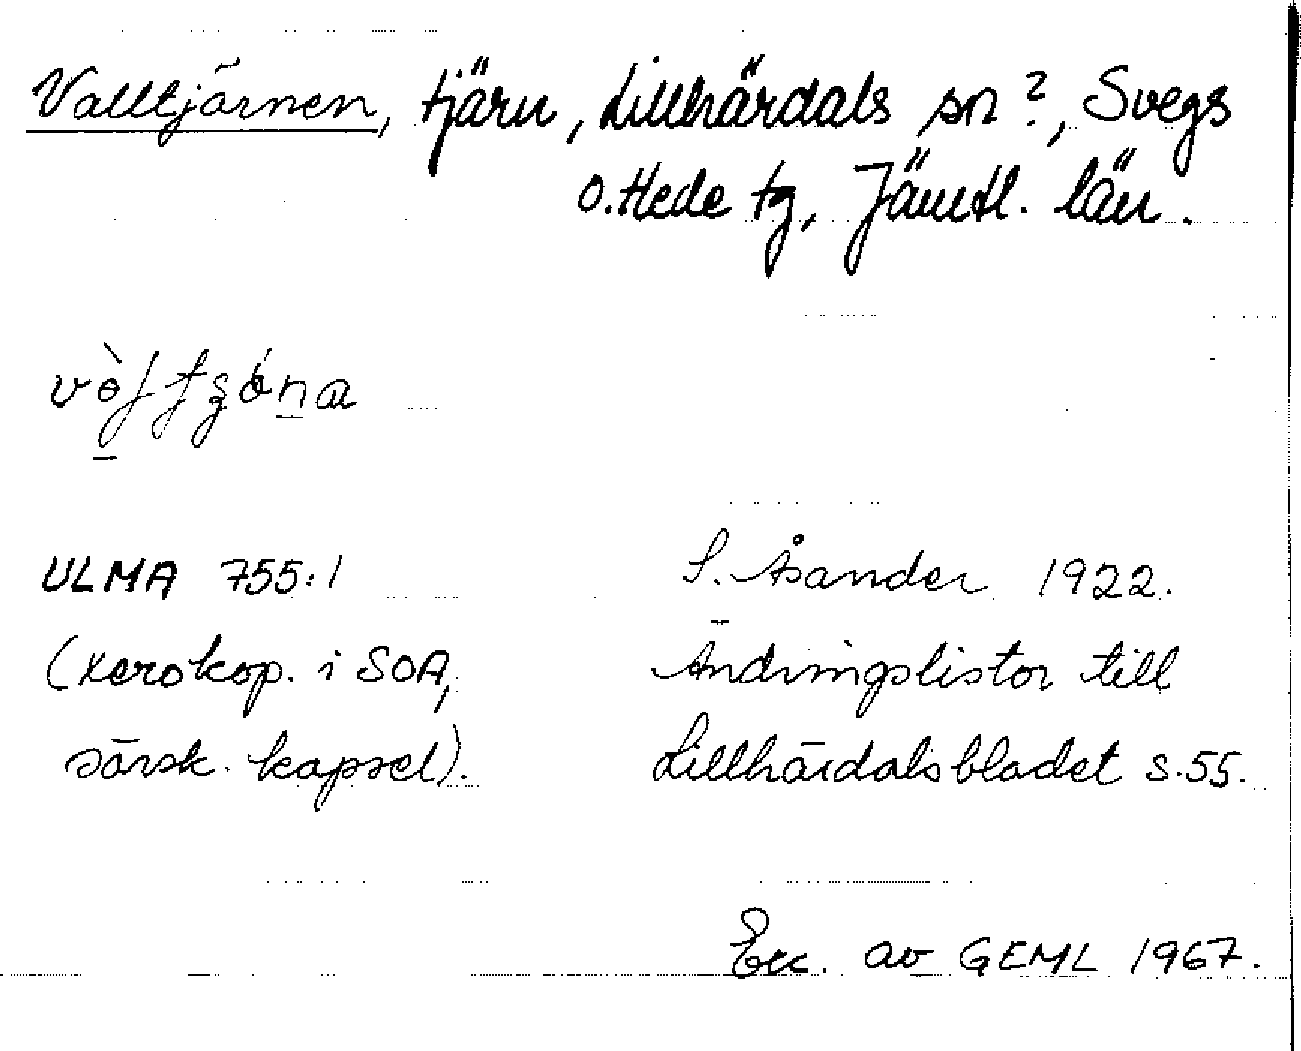 Valltjärnen, tjärn, Lillhärdals sn?, Svegs
o. Hede tg, Jämtl. län.
ULMA 755:1
(xerokop. i SOA,
särsk. kapsel).
S. Åsander 1922.
Ändringslistor till
Lillhärdalsbladet s. 55.
Exc. av GEML 1967.